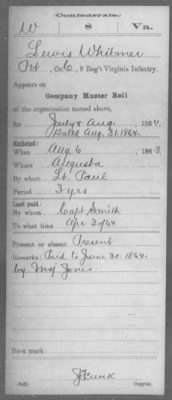 Confederate.
W 8 Va.
Lewis Whitmer
Pvt, Co. G, 8 Reg't Virginia Infantry.
Appears on
Company Muster Roll
of the organization named above,
for July & Aug., 1864.
Dated Aug. 31. 1864.
Enlisted:
When Aug 6, 1863.
Where Augusta
By whom Lt. Paul
Period 3 yrs
Last paid:
By whom Capt Smith
To what time Apr 30/64
Present or absent Present
Remarks: Paid to June 30. 1864.
by Maj Jones
Book mark:
J Funk
Copyist.